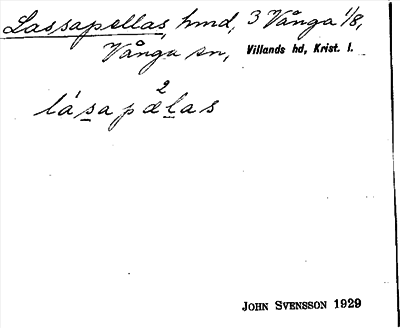 Lassapellas, hmd, 3 Vånga 1/8,
Vånga sn, Villands hd, Krist. l.
2
lásapælas
JOHN SVENSSON 1929